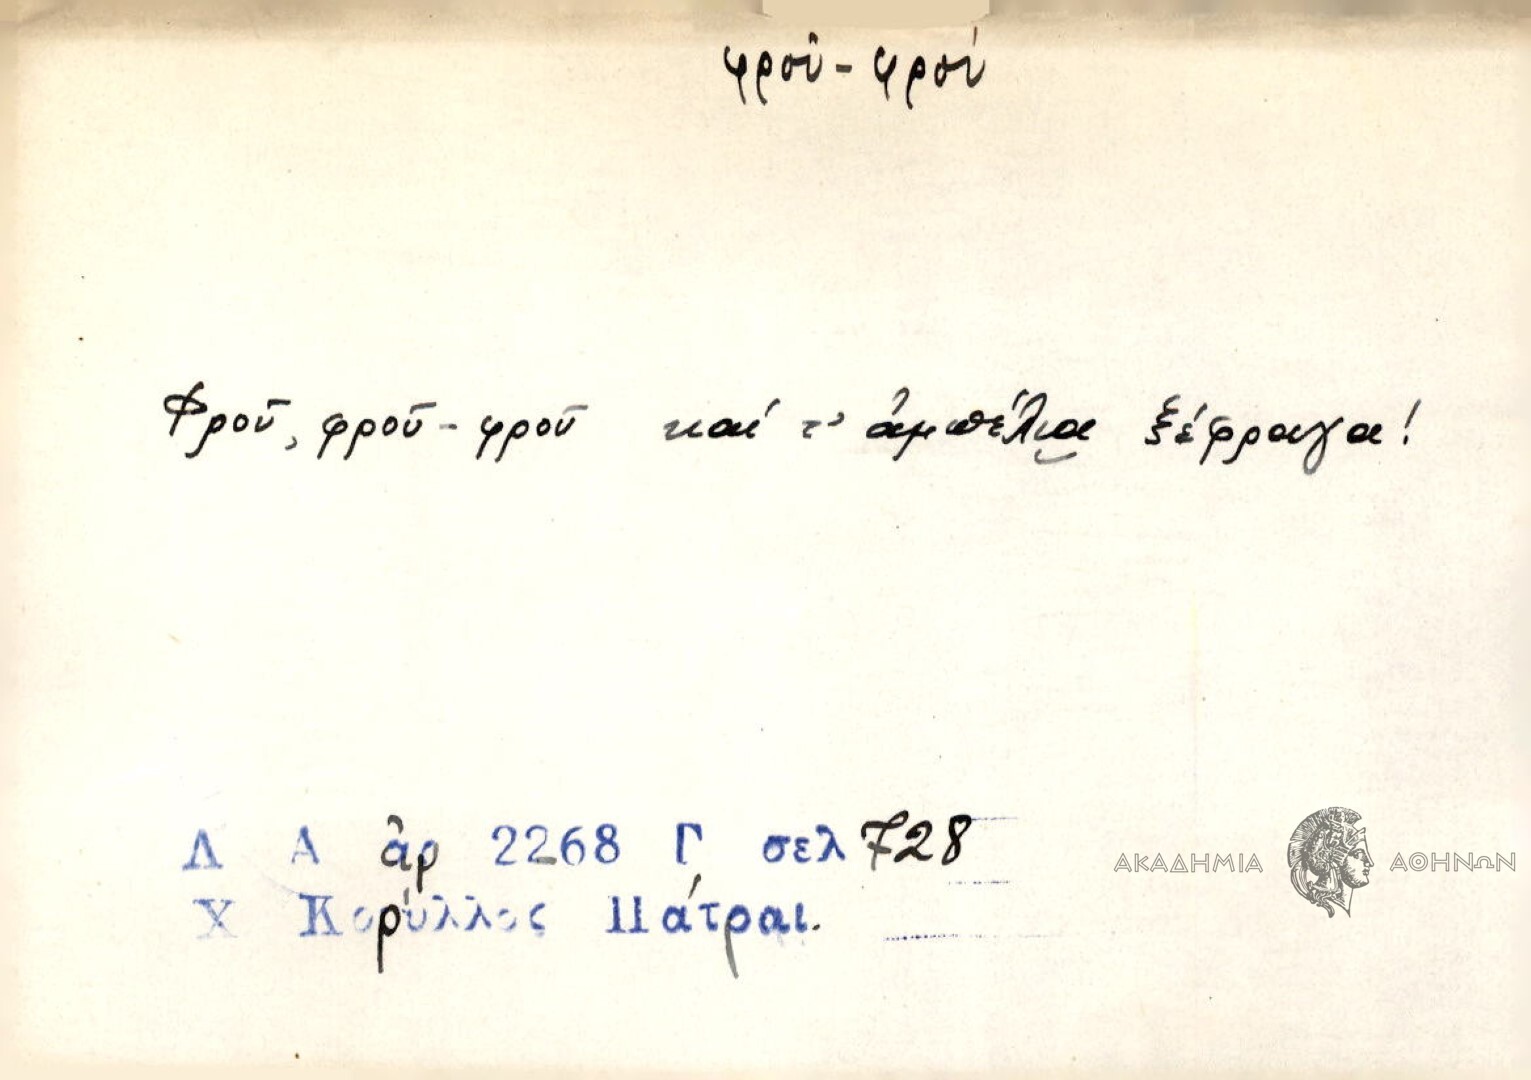 φροῦ - φρού
Φροῦ, φροῦ - φροῦ καί τ' ἀμπέλια ξέφραγα!
Λ Α ἀρ 2268 Γ σελ 728
Χ Κορύλλος Πάτραι.
ΑΚΑΔΗΜΙΑ ΑΘΗΝΩΝ